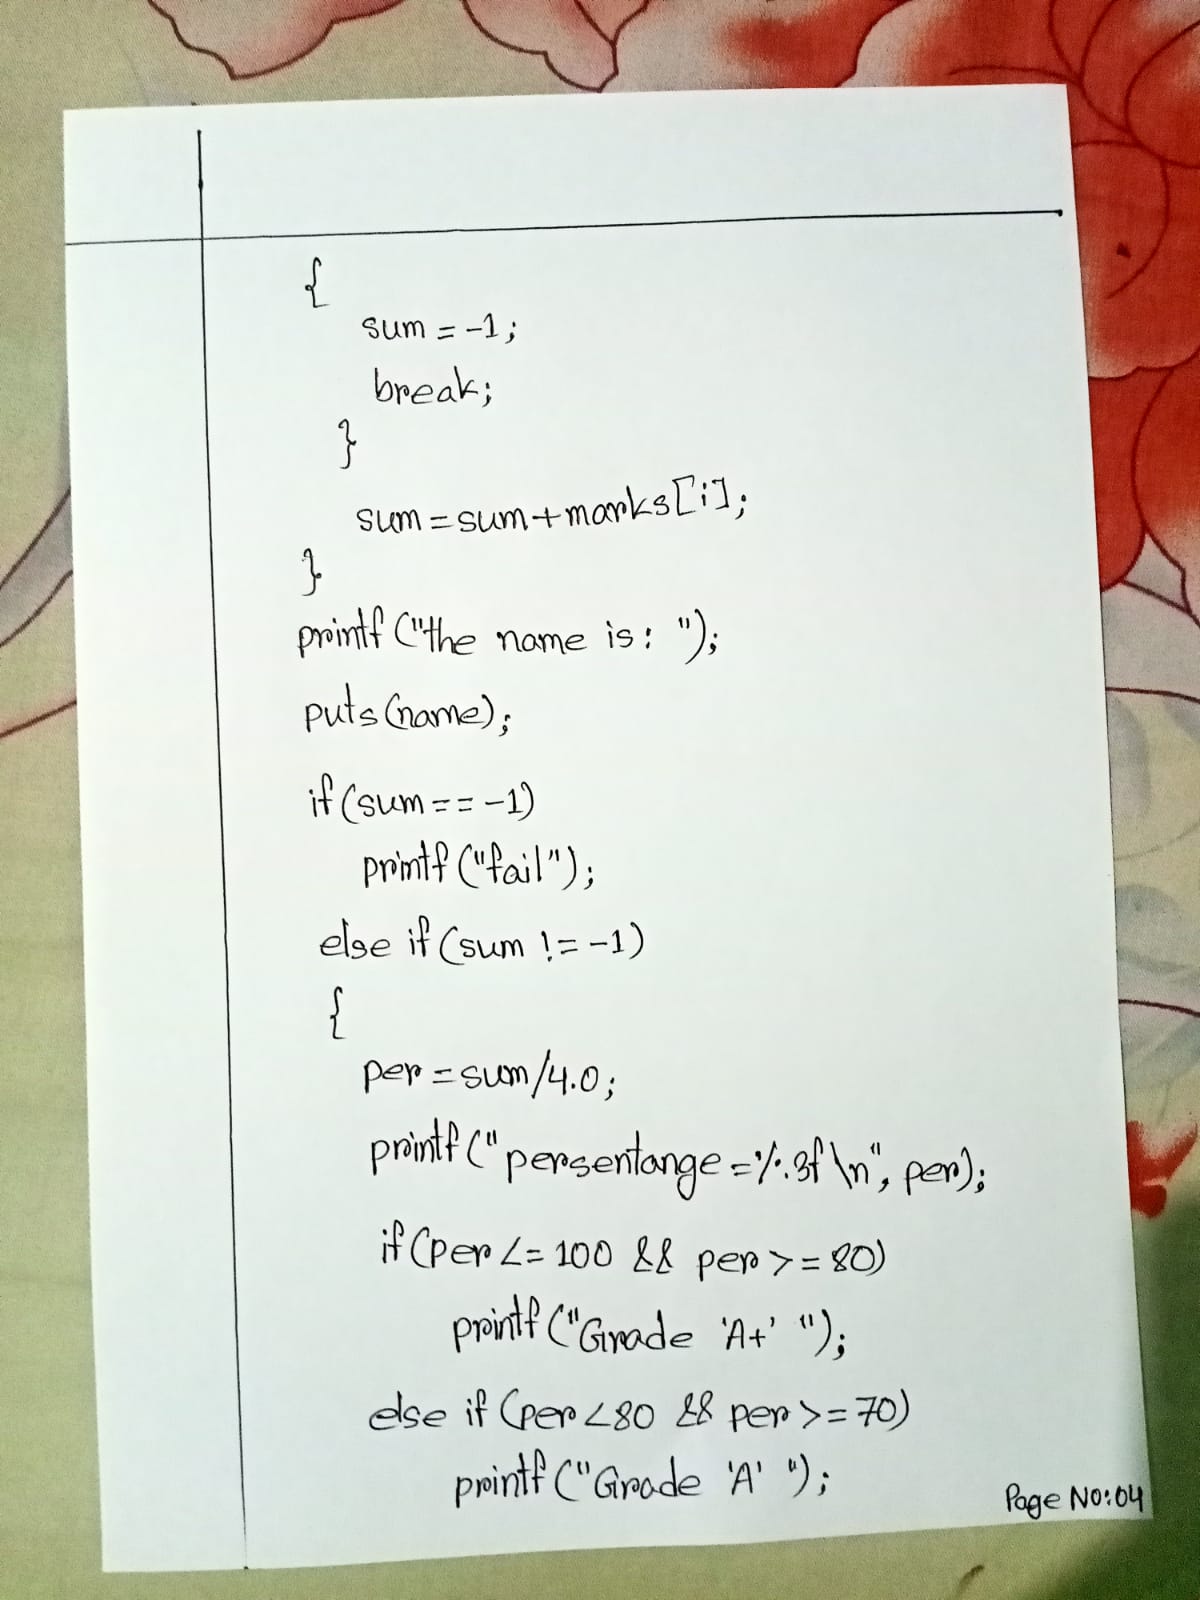 {
sum = -1;
break;
}
sum = sum + marks[i];
}
printf ("the name is: ");
puts (name);
if (sum == -1)
printf ("fail");
else if (sum != -1)
{
per = sum/4.0;
printf (" persentange = %.3f \n", per);
if (per <= 100 && per >= 80)
printf ("Grade 'A+' ");
else if (per < 80 && per >= 70)
printf ("Grade 'A' ");
Page No: 04